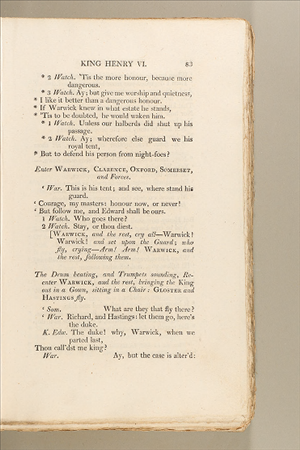 KING HENRY VI. 83
* 2 Watch. 'Tis the more honour, because more
dangerous.
* 3 Watch. Ay; but give me worship and quietness,
* I like it better than a dangerous honour.
* If Warwick knew in what estate he stands,
* 'Tis to be doubted, he would waken him.
* 1 Watch. Unless our halberds did shut up his
passage.
* 2 Watch. Ay; wherefore else guard we his
royal tent,
* But to defend his person from night-foes?
Enter WARWICK, CLARENCE, OXFORD, SOMERSET,
and Forces.
‘ War. This is his tent; and see, where stand his
guard.
‘ Courage, my masters: honour now, or never!
‘ But follow me, and Edward shall be ours.
1 Watch. Who goes there?
2 Watch. Stay, or thou diest.
[WARWICK, and the rest, cry all—Warwick!
Warwick! and set upon the Guard; who
fly, crying—Arm! Arm! WARWICK, and
the rest, following them.
The Drum beating, and Trumpets sounding, Re-
enter WARWICK, and the rest, bringing the King
out in a Gown, sitting in a Chair: GLOSTER and
HASTINGS fly.
‘ Som. What are they that fly there?
‘ War. Richard, and Hastings: let them go, here's
the duke.
K. Edw. The duke! why, Warwick, when we
parted last,
Thou call'dst me king?
War. Ay, but the case is alter'd: